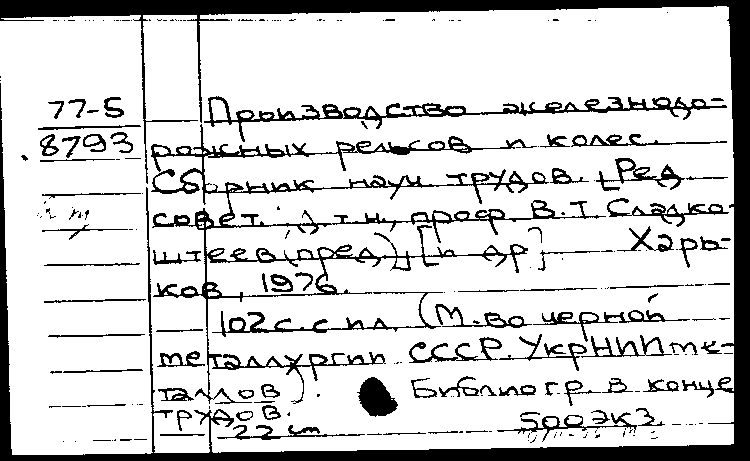 77-5 Производство железнодо-
8793 рожных рельсов и колес.
Сборник науч. трудов. [Ред.
совет: д.т.н., проф. В.Т. Сладко-
штеев (пред.)] [и др]. Харь-
ков, 1976.
102 с. с ил. (М-во черной
металлургии СССР. УкрНИИме-
таллов). Библиогр. в конце
трудов.
22 cm 500экз.